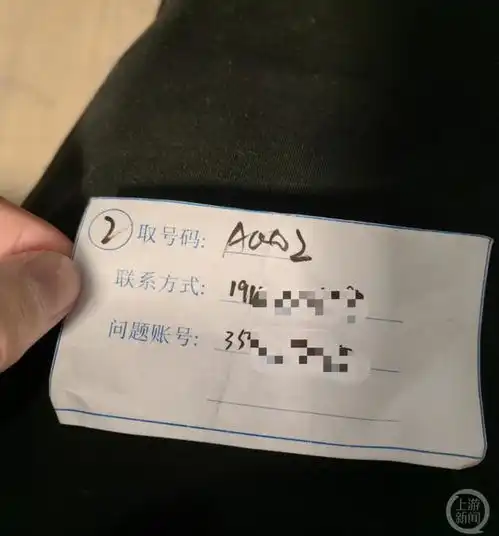 ② 取号码: A002
联系方式: 191
问题账号: 35
上游新闻